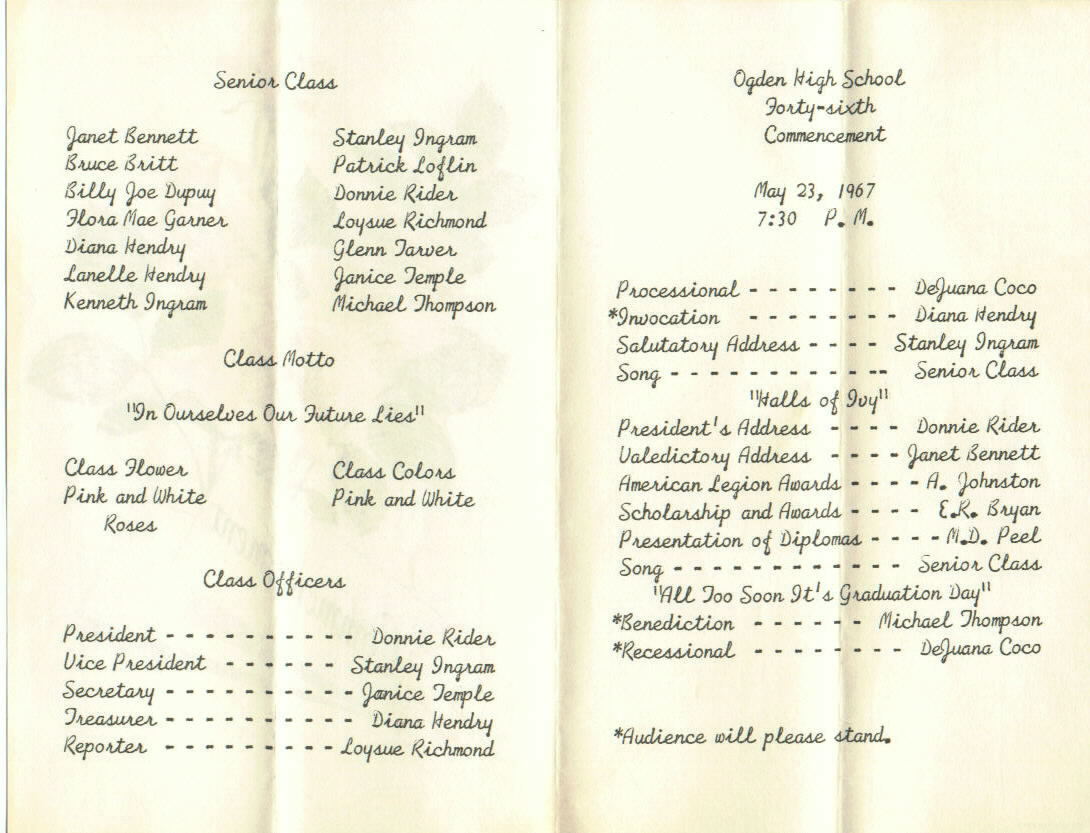 Senior Class
Janet Bennett Stanley Ingram
Bruce Britt Patrick Loflin
Billy Joe Dupuy Donnie Rider
Flora Mae Garner Loysue Richmond
Diana Hendry Glenn Tarver
Lanelle Hendry Janice Temple
Kenneth Ingram Michael Thompson
Class Motto
"In Ourselves Our Future Lies"
Class Flower Class Colors
Pink and White Pink and White
Roses
Class Officers
President - - - - - - - - - - Donnie Rider
Vice President - - - - - - Stanley Ingram
Secretary - - - - - - - - - - Janice Temple
Treasurer - - - - - - - - - - Diana Hendry
Reporter - - - - - - - - - Loysue Richmond
Ogden High School
Forty-sixth
Commencement
May 23, 1967
7:30 P. M.
Processional - - - - - - - - DeJuana Coco
*Invocation - - - - - - - - Diana Hendry
Salutatory Address - - - - Stanley Ingram
Song - - - - - - - - - - - - Senior Class
"Halls of Ivy"
President's Address - - - - Donnie Rider
Valedictory Address - - - - Janet Bennett
American Legion Awards - - - - A. Johnston
Scholarship and Awards - - - - E.R. Bryan
Presentation of Diplomas - - - - M.D. Peel
Song - - - - - - - - - - - - Senior Class
"All Too Soon It's Graduation Day"
*Benediction - - - - - - Michael Thompson
*Recessional - - - - - - - - DeJuana Coco
*Audience will please stand.